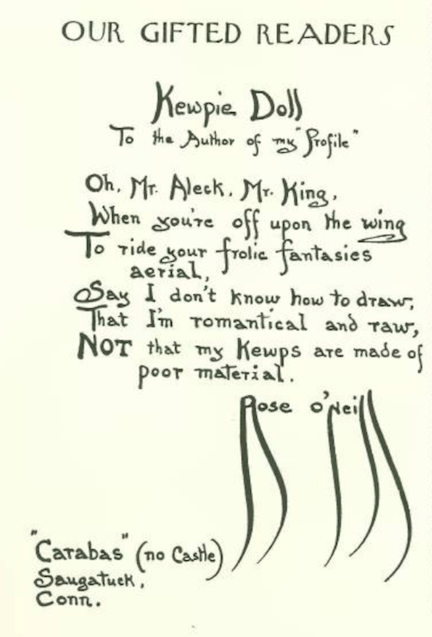 OUR GIFTED READERS
Kewpie Doll
To the Author of my "Profile"
Oh, Mr. Aleck, Mr. King,
When you're off upon the wing
To ride your frolic fantasies
aerial,
Say I don't know how to draw,
That I'm romantical and raw,
NOT that my Kewps are made of
poor material.
Rose O'Neill
"Carabas" (no Castle)
Saugatuck,
Conn.